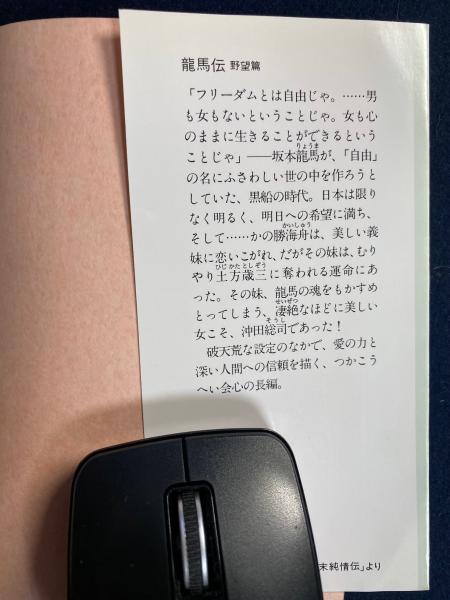 龍馬伝 野望篇
「フリーダムとは自由じゃ。……男
も女もないということじゃ。女も心
のままに生きることができるという
ことじゃ」——坂本龍馬が、「自由」
の名にふさわしい世の中を作ろうと
していた、黒船の時代。日本は限り
なく明るく、明日への希望に満ち、
そして……かの勝海舟は、美しい義
妹に恋いこがれ、だがその妹は、むり
やり土方歳三に奪われる運命にあ
った。その妹、龍馬の魂をもかすめ
とってしまう、凄絶なほどに美しい
女こそ、沖田総司であった！
破天荒な設定のなかで、愛の力と
深い人間への信頼を描く、つかこう
へい会心の長編。
末純情伝」より